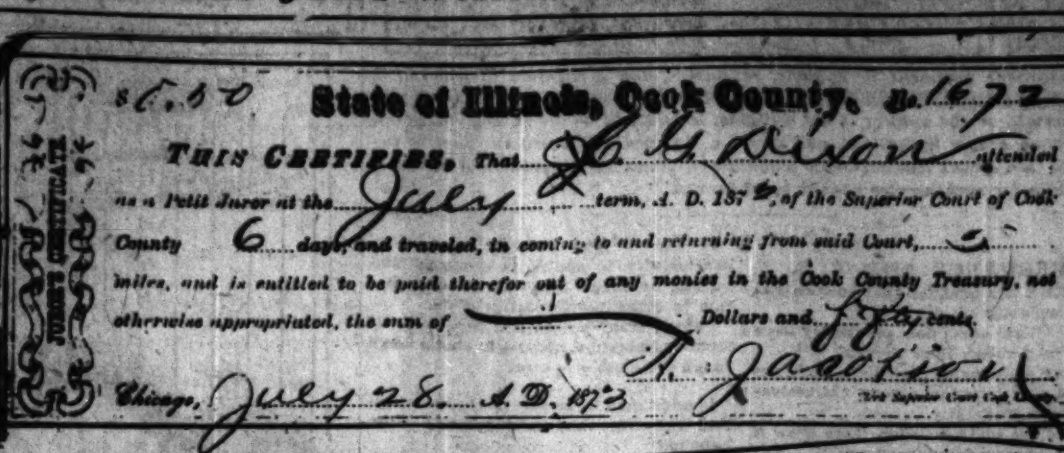 JUROR'S CERTIFICATE
$ State of Illinois, Cook County. No. 1672
THIS CERTIFIES, That G. Dixon attended
as a Petit Juror at the July term, A. D. 1873, of the Superior Court of Cook
County 6 days, and traveled, in coming to and returning from said Court, 5
miles, and is entitled to be paid therefor out of any monies in the Cook County Treasury, not
otherwise appropriated, the sum of Dollars and fifty cents.
A. Jacobson
Chicago, July 28 A. D. 1873
Clerk Superior Court Cook County